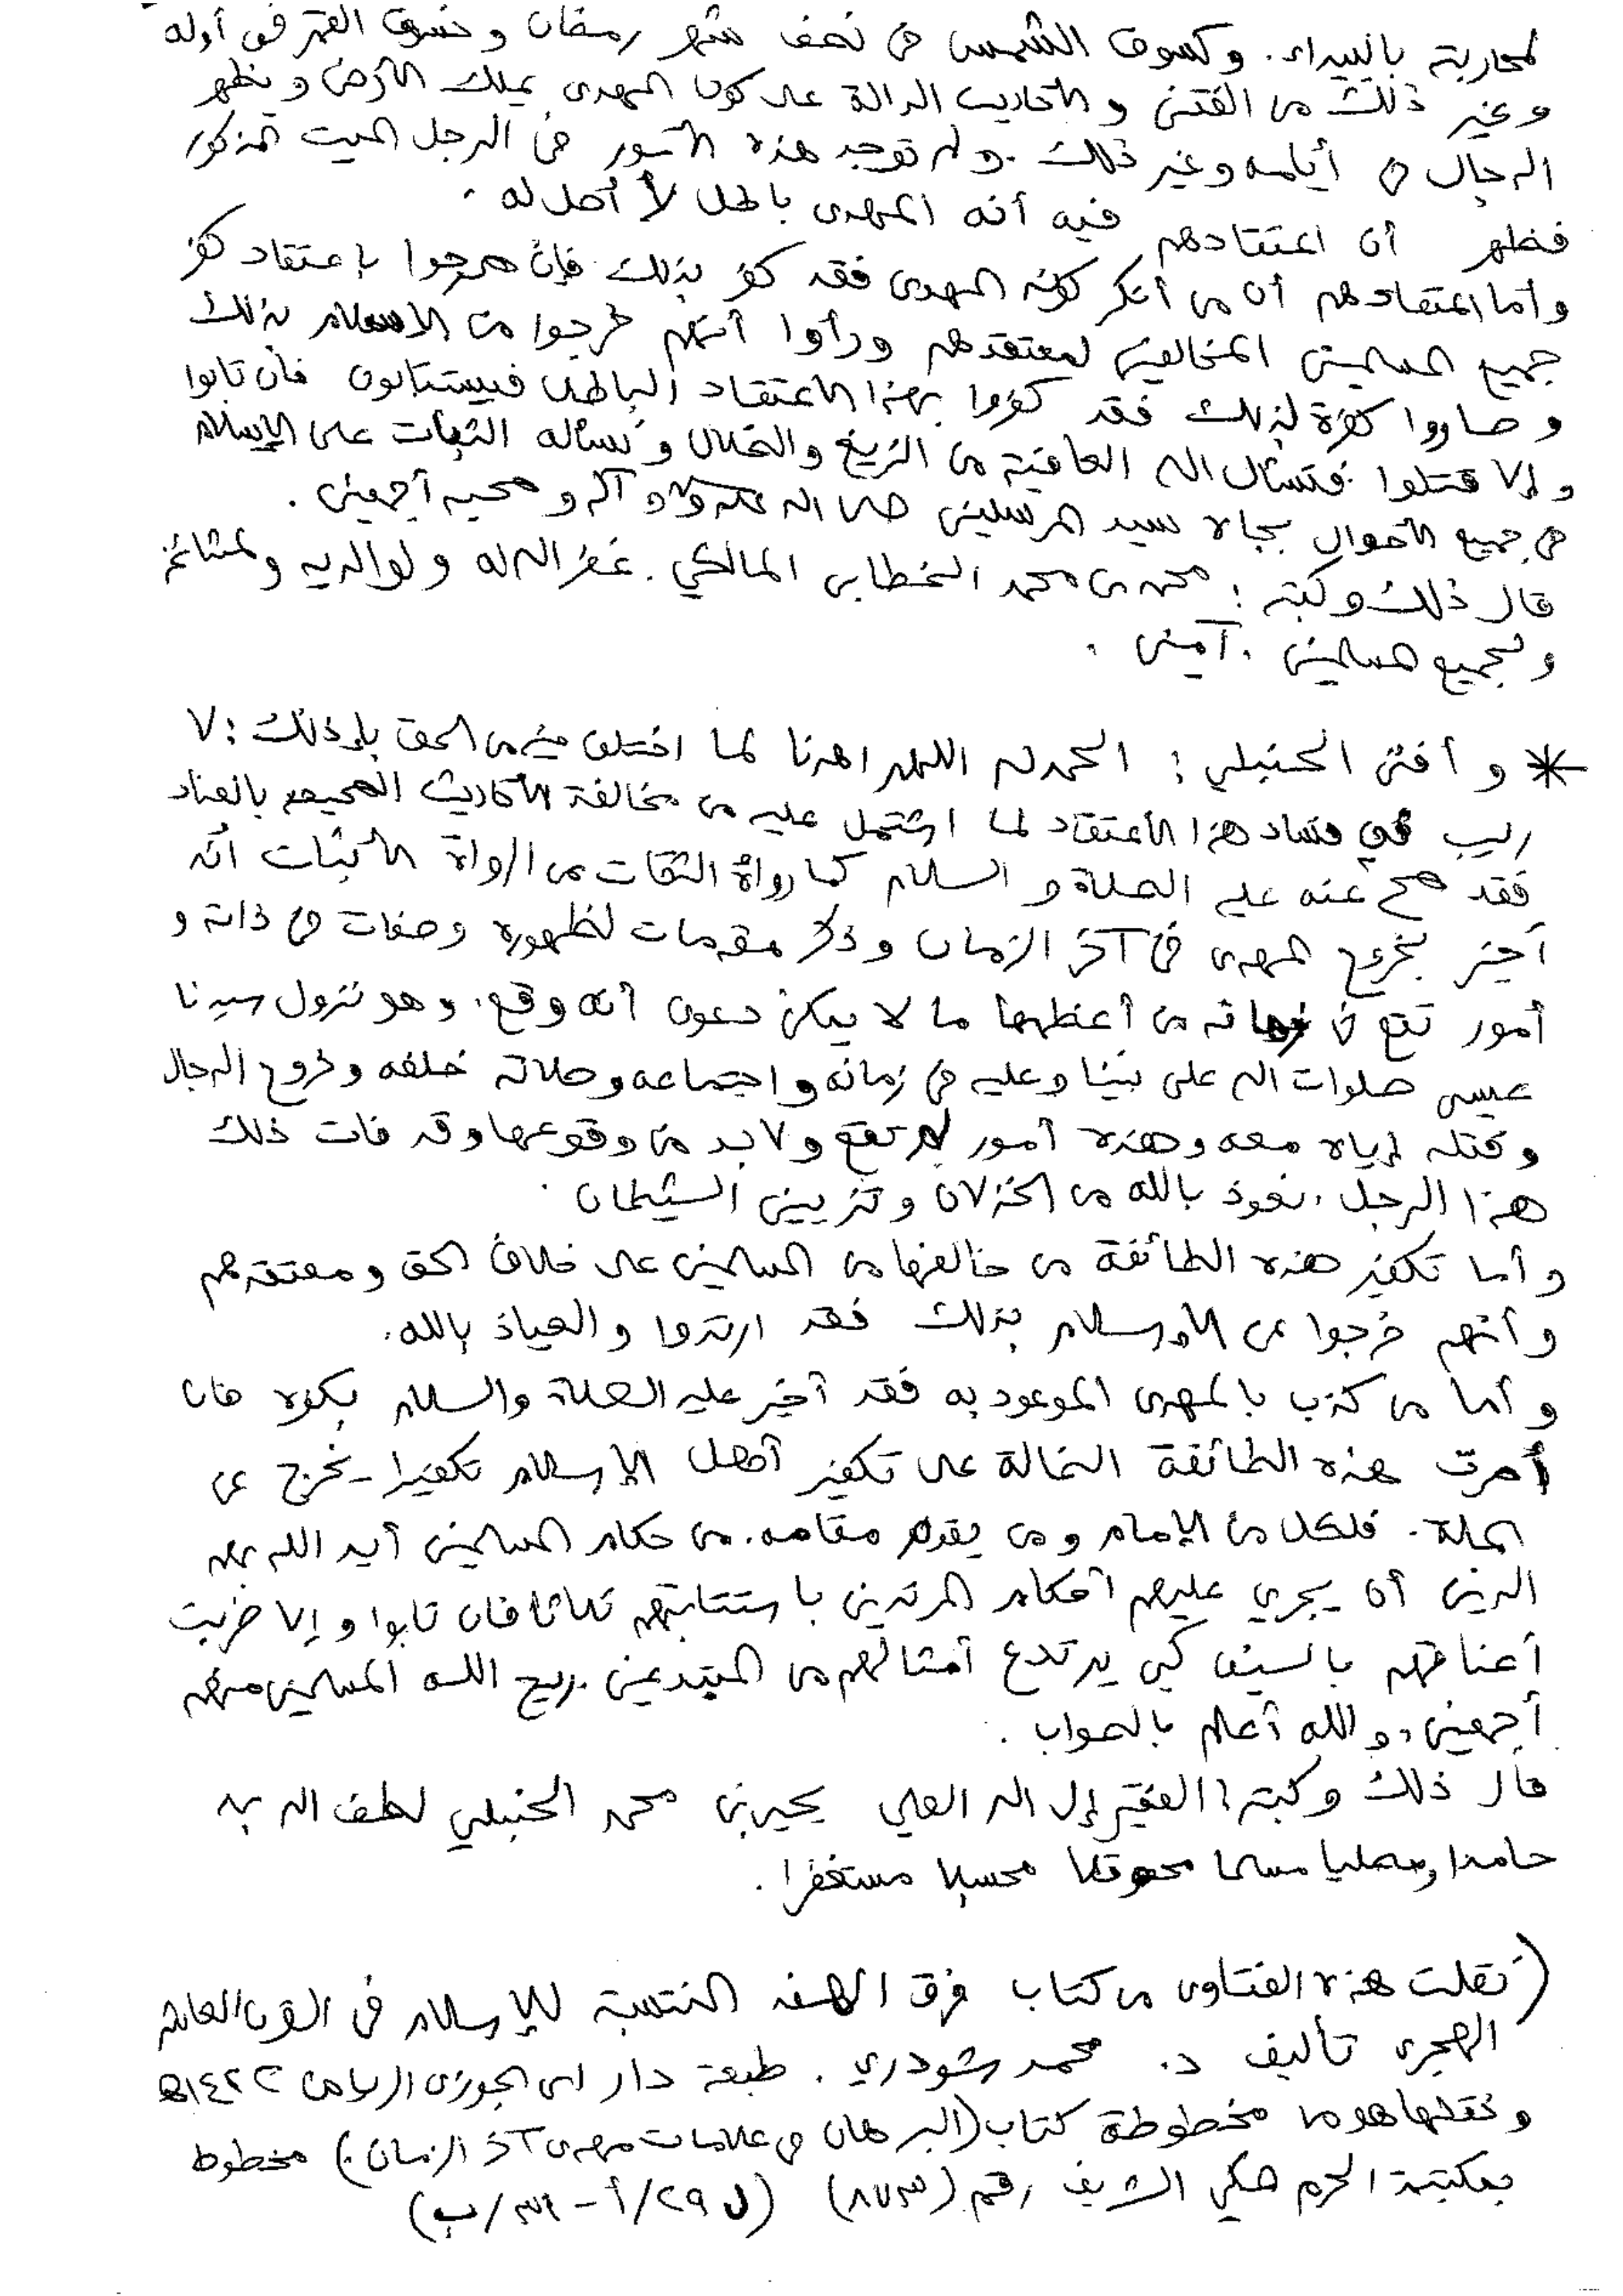 لمحاربته بالبيداء. وكسوف الشمس في نصف شهر رمضان وخسوف القمر في أوله
وغير ذلك من الفتن والأحاديث الدالة على كون المهدي يملك الأرض ويظهر
الدجال في أيامه وغير ذلك. ولم توجد هذه الأمور في الرجل الميت المذكور
فظهر أن اعتقادهم فيه أنه المهدي باطل لا أصل له.
وأما اعتقادهم أن من أنكر كونه المهدي فقد كفر بذلك فإن صرحوا بإعتقاد كفر
جميع المسلمين المخالفين لمعتقدهم ورأوا أنهم خرجوا من الإسلام بذلك
وصاروا كفرة لذلك فقد كفروا بهذا الاعتقاد الباطل فيستتابون فإن تابوا
وإلا قتلوا فنسأل الله العافية من الزيغ والضلال ونسأله الثبات على الإسلام
في جميع الأحوال بجاه سيد المرسلين صلى الله عليه وآله وصحبه أجمعين.
قال ذلك وكتبه: محمد بن محمد الخطابي المالكي. غفر الله له ولوالديه ولمشائخه
ولجميع المسلمين. آمين.
* وأفتى الحنبلي: الحمد لله اللهم اهدنا لما اختلف فيه من الحق بإذنك: لا
ريب في فساد هذا الاعتقاد لما اشتمل عليه من مخالفة الأحاديث الصحيحة بالعناد
فقد صح عنه عليه الصلاة والسلام كما رواه الثقات عن الرواة الأثبات أنه
أخبر بخروج المهدي في آخر الزمان وذكر مقدمات لظهوره وصفات في ذاته و
أمور تقع في زمانه من أعظمها ما لا يمكن دعوى أنه وقع. وهو نزول سيدنا
عيسى صلوات الله على نبينا وعليه في زمانه واجتماعه وصلاته خلفه وخروج الدجال
وقتله إياه معه وهذه أمور لم تقع ولا بد من وقوعها وقد فات ذلك
هذا الرجل. نعوذ بالله من الخذلان وتزيين الشيطان.
وأما تكفير هذه الطائفة من خالفها من المسلمين على خلاف الحق ومعتقدهم
وأنهم خرجوا عن الإسلام بذلك فقد ارتدوا والعياذ بالله.
وأما من كذب بالمهدي الموعود به فقد أخبر عليه الصلاة والسلام بكفره فإن
أصرت هذه الطائفة الضالة على تكفير أهل الإسلام تكفيرا يخرج عن
الملة. فلكل من الإمام ومن يقوم مقامه. من حكام المسلمين أيد الله بهم
الدين أن يجري عليهم أحكام المرتدين باستتابتهم ثلاثا فإن تابوا وإلا ضربت
أعناقهم بالسيف كي يرتدع أمثالهم من المبتدعين. يريح الله المسلمين منهم
أجمعين، والله أعلم بالصواب.
قال ذلك وكتبه: الفقير إلى الله العلي يحيى بن محمد الحنبلي لطف الله به
حامدا ومصليا مسلما محوقلا محسبلا مستغفرا.
(نقلت هذه الفتاوى من كتاب فرق الهند المنتسبة للإسلام في القرن العاشر
الهجري تأليف د. محمد شودري. طبعة دار ابن الجوزي الرياض ١٤٢٢ه
ونقلها هو من مخطوطة كتاب (البرهان في علامات مهدي آخر الزمان.) مخطوط
بمكتبة الحرم المكي الشريف رقم (٨٧٣) (ل ٢٩/أ - ٣١/ب)